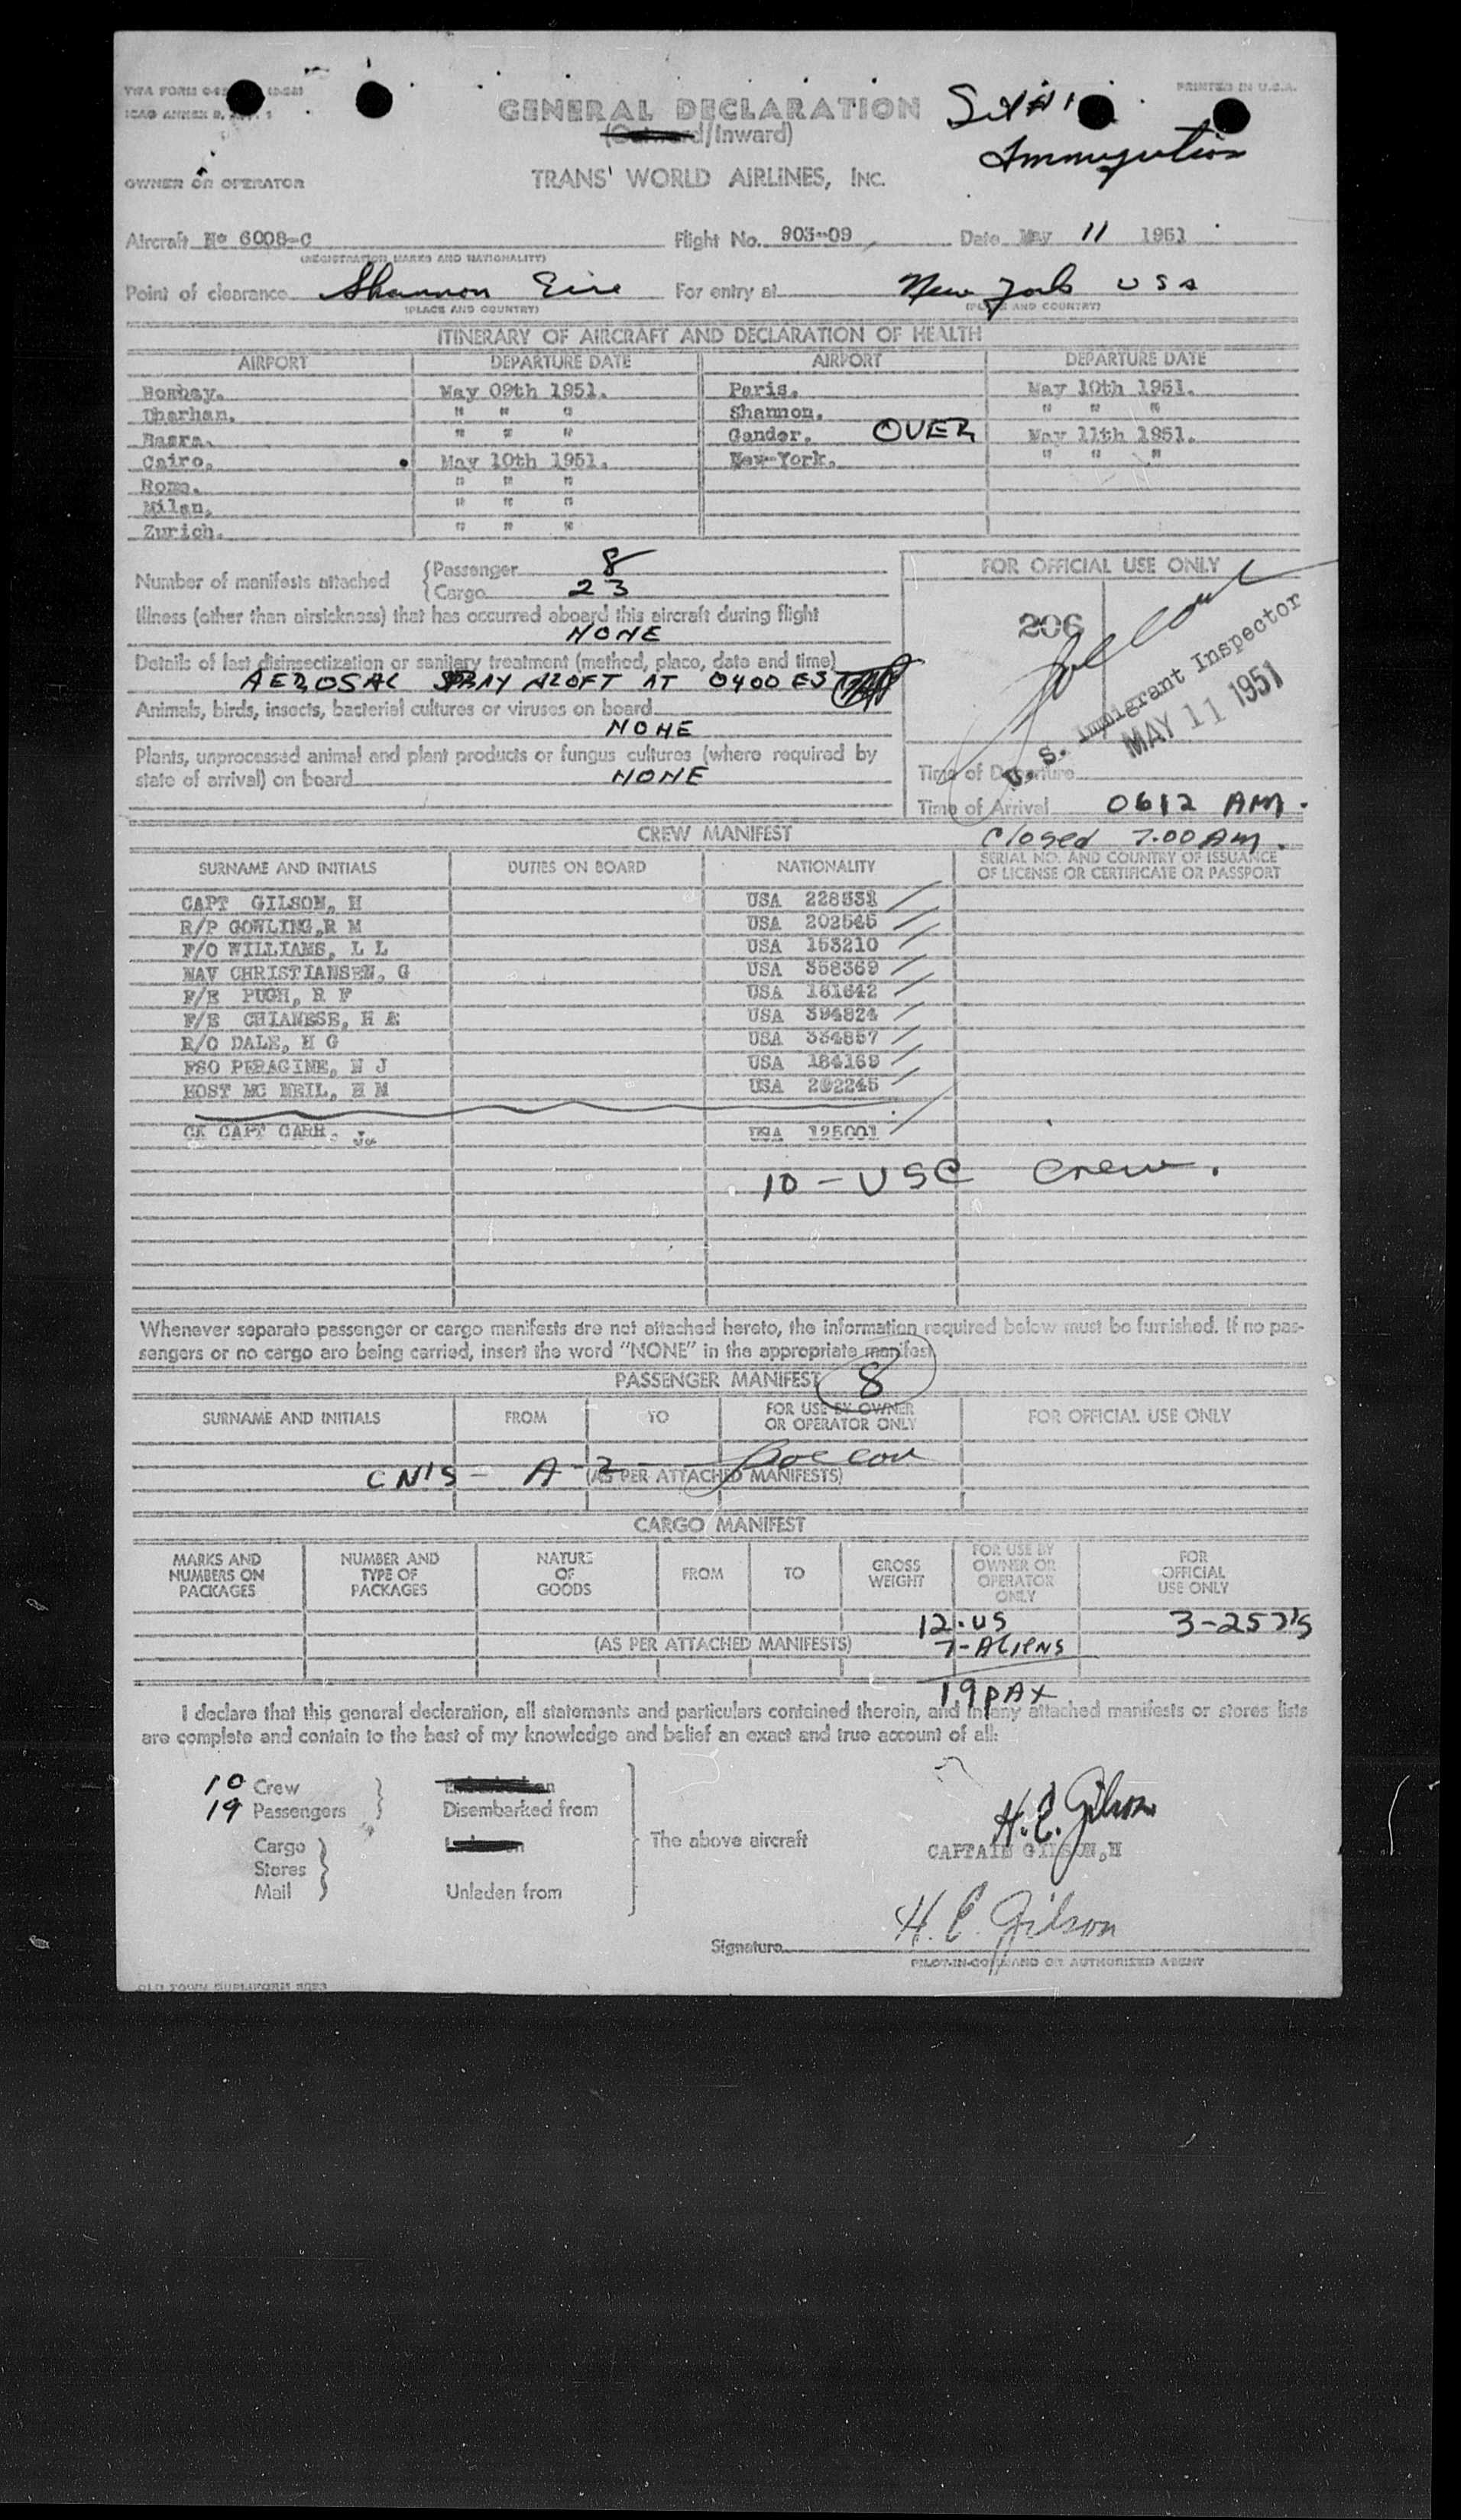 TWA FORM
PRINTED IN U.S.A.
ICAO ANNEX 9,
GENERAL DECLARATION
/Inward)
Immigration
OWNER OR OPERATOR
TRANS WORLD AIRLINES, INC.
Aircraft No 6008-C Flight No. 903-09 Date May 11 1951
(REGISTRATION MARKS AND NATIONALITY)
Point of clearance Shannon Eire For entry at New York USA
(PLACE AND COUNTRY) (PLACE AND COUNTRY)
ITINERARY OF AIRCRAFT AND DECLARATION OF HEALTH
AIRPORT DEPARTURE DATE AIRPORT DEPARTURE DATE
Bombay. May 09th 1951. Paris. May 10th 1951.
Dharhan. " " " Shannon. " " "
Basra. " " " Gander. OVER May 11th 1951.
Cairo. May 10th 1951. New-York. " " "
Rome. " " "
Milan. " " "
Zurich. " " "
Number of manifests attached { Passenger 8
{ Cargo 23
FOR OFFICIAL USE ONLY
206
Illness (other than airsickness) that has occurred aboard this aircraft during flight
NONE
Details of last disinsectization or sanitary treatment (method, place, date and time)
AEROSAL SPRAY ALOFT AT 0400 EST
Animals, birds, insects, bacterial cultures or viruses on board
NONE
Plants, unprocessed animal and plant products or fungus cultures (where required by
state of arrival) on board NONE
U. S. Immigrant Inspector
MAY 11 1951
Time of Departure
Time of Arrival 0612 AM.
Closed 7.00 AM.
CREW MANIFEST
SURNAME AND INITIALS DUTIES ON BOARD NATIONALITY SERIAL NO. AND COUNTRY OF ISSUANCE
OF LICENSE OR CERTIFICATE OR PASSPORT
CAPT GILSON, H USA 228531
R/P GOWLING,R M USA 202545
F/O WILLIAMS, L L USA 153210
NAV CHRISTIANSEN, G USA 358369
F/E PUGH, R F USA 161642
F/E CHIANESE, H A USA 394824
R/O DALE, H G USA 334857
FSO PERAGINE, N J USA 184169
HOST MC NEIL, H M USA 292245
CK CAPT CARR, J. USA 125001
10 - USC Crew.
Whenever separate passenger or cargo manifests are not attached hereto, the information required below must be furnished. If no pas-
sengers or no cargo are being carried, insert the word "NONE" in the appropriate manifest.
PASSENGER MANIFEST 8
SURNAME AND INITIALS FROM TO FOR USE BY OWNER
OR OPERATOR ONLY FOR OFFICIAL USE ONLY
CN'S - A-2
(AS PER ATTACHED MANIFESTS)
CARGO MANIFEST
MARKS AND
NUMBERS ON
PACKAGES NUMBER AND
TYPE OF
PACKAGES NATURE
OF
GOODS FROM TO GROSS
WEIGHT FOR USE BY
OWNER OR
OPERATOR
ONLY FOR
OFFICIAL
USE ONLY
12-US 3-257's
(AS PER ATTACHED MANIFESTS) 7-ALIENS
19 PAX
I declare that this general declaration, all statements and particulars contained therein, and in any attached manifests or stores lists
are complete and contain to the best of my knowledge and belief an exact and true account of all:
10 Crew
19 Passengers } Disembarked from
Cargo
Stores }
Mail Unladen from
The above aircraft
H. E. Gilson
CAPTAIN GILSON,H
H. E. Gilson
Signature
PILOT-IN-COMMAND OR AUTHORIZED AGENT
OLD TOWN DUPLIFORM